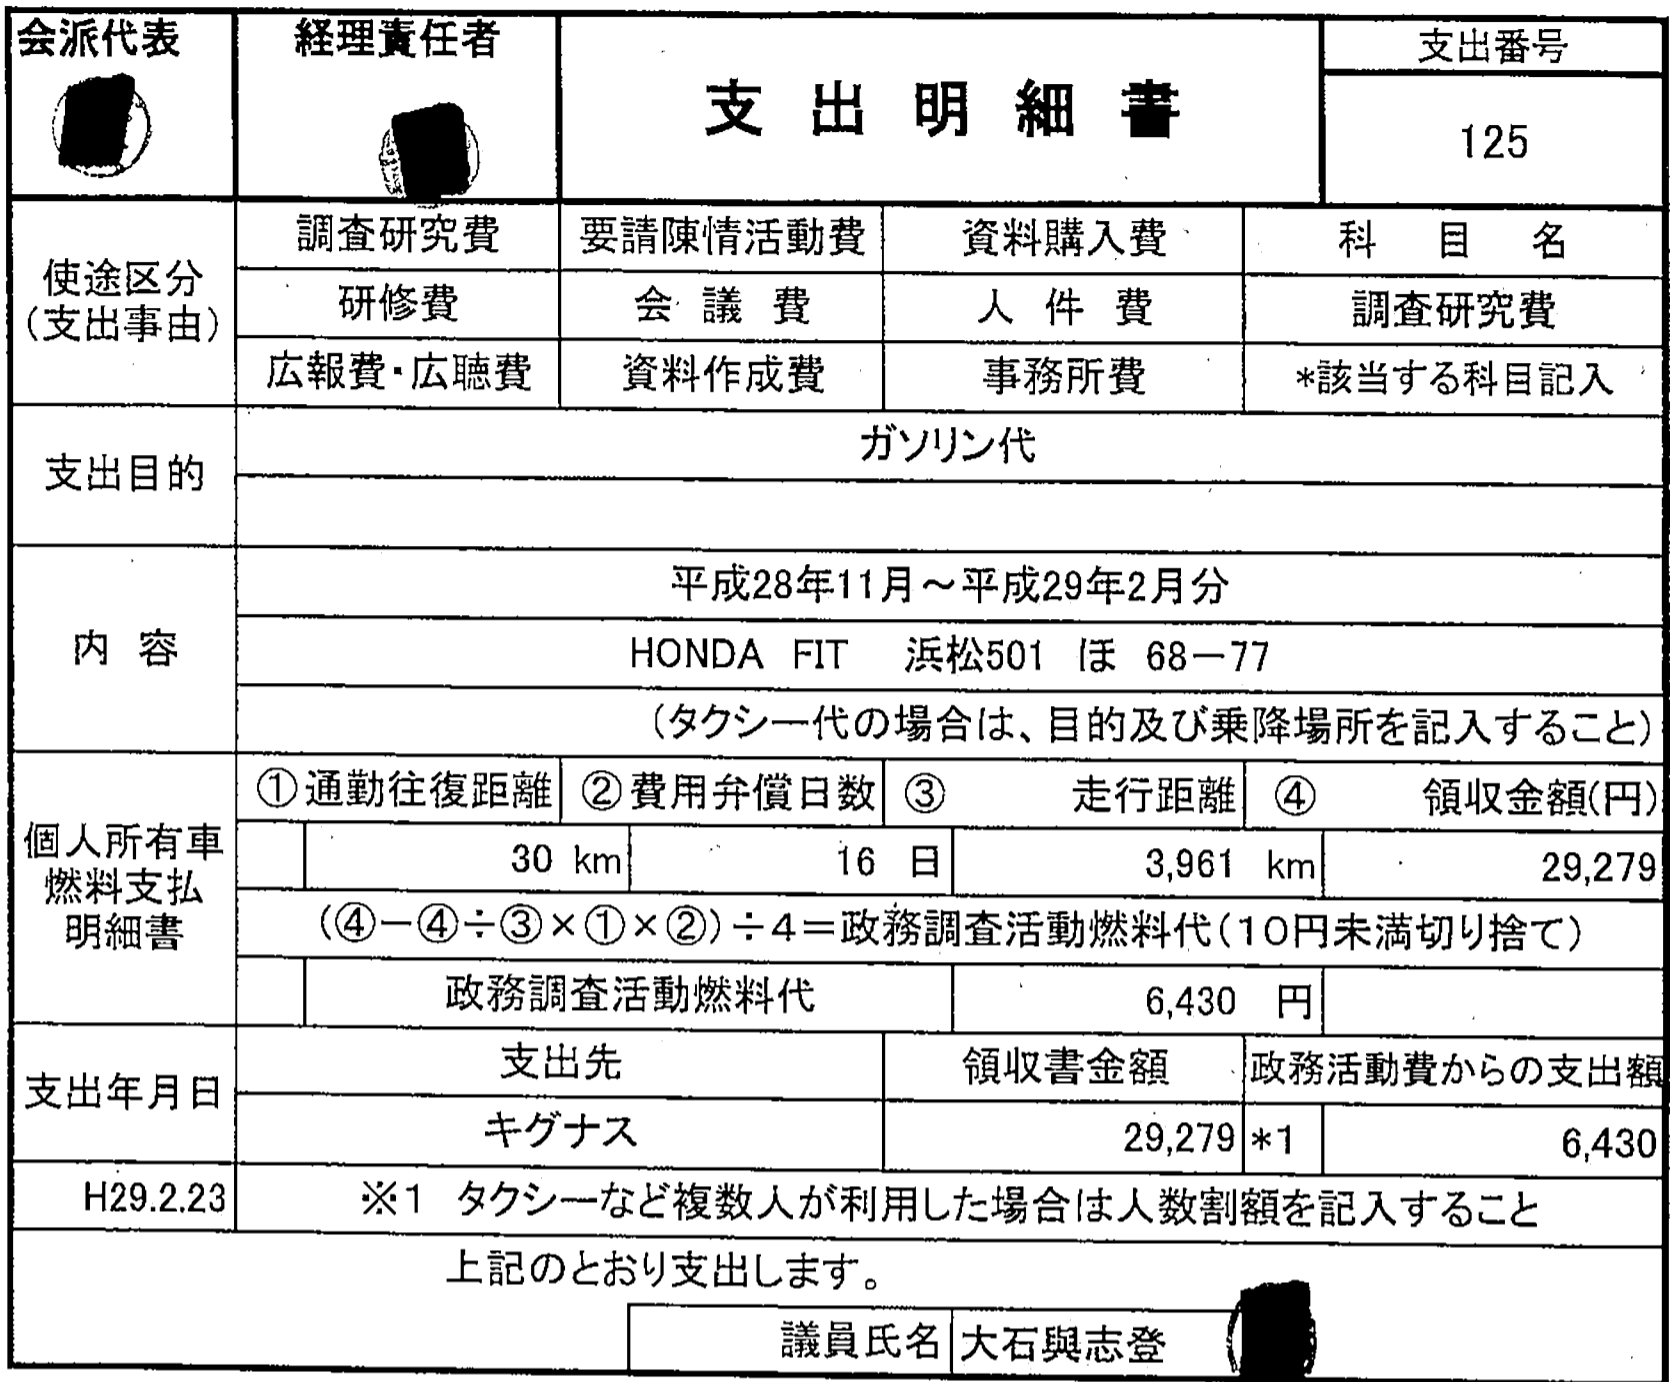 会派代表 経理責任者 支出明細書 支出番号
125
使途区分
(支出事由)
調査研究費 要請陳情活動費 資料購入費 科目名
研修費 会議費 人件費 調査研究費
広報費・広聴費 資料作成費 事務所費 *該当する科目記入
支出目的
ガソリン代
内容
平成28年11月～平成29年2月分
HONDA FIT 浜松501 ほ 68－77
(タクシー代の場合は、目的及び乗降場所を記入すること)
個人所有車
燃料支払
明細書
①通勤往復距離 ②費用弁償日数 ③ 走行距離 ④ 領収金額(円)
30 km 16 日 3,961 km 29,279
(④－④÷③×①×②)÷4＝政務調査活動燃料代(10円未満切り捨て)
政務調査活動燃料代 6,430 円
支出年月日
支出先 領収書金額 政務活動費からの支出額
キグナス 29,279 *1 6,430
H29.2.23 ※1 タクシーなど複数人が利用した場合は人数割額を記入すること
上記のとおり支出します。
議員氏名 大石與志登